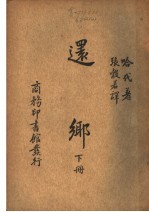 哈代著
張穀若譯
還鄉
下冊
商務印書館發行